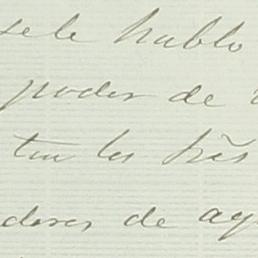 sele hablo
poder de
ten los
dores de ay